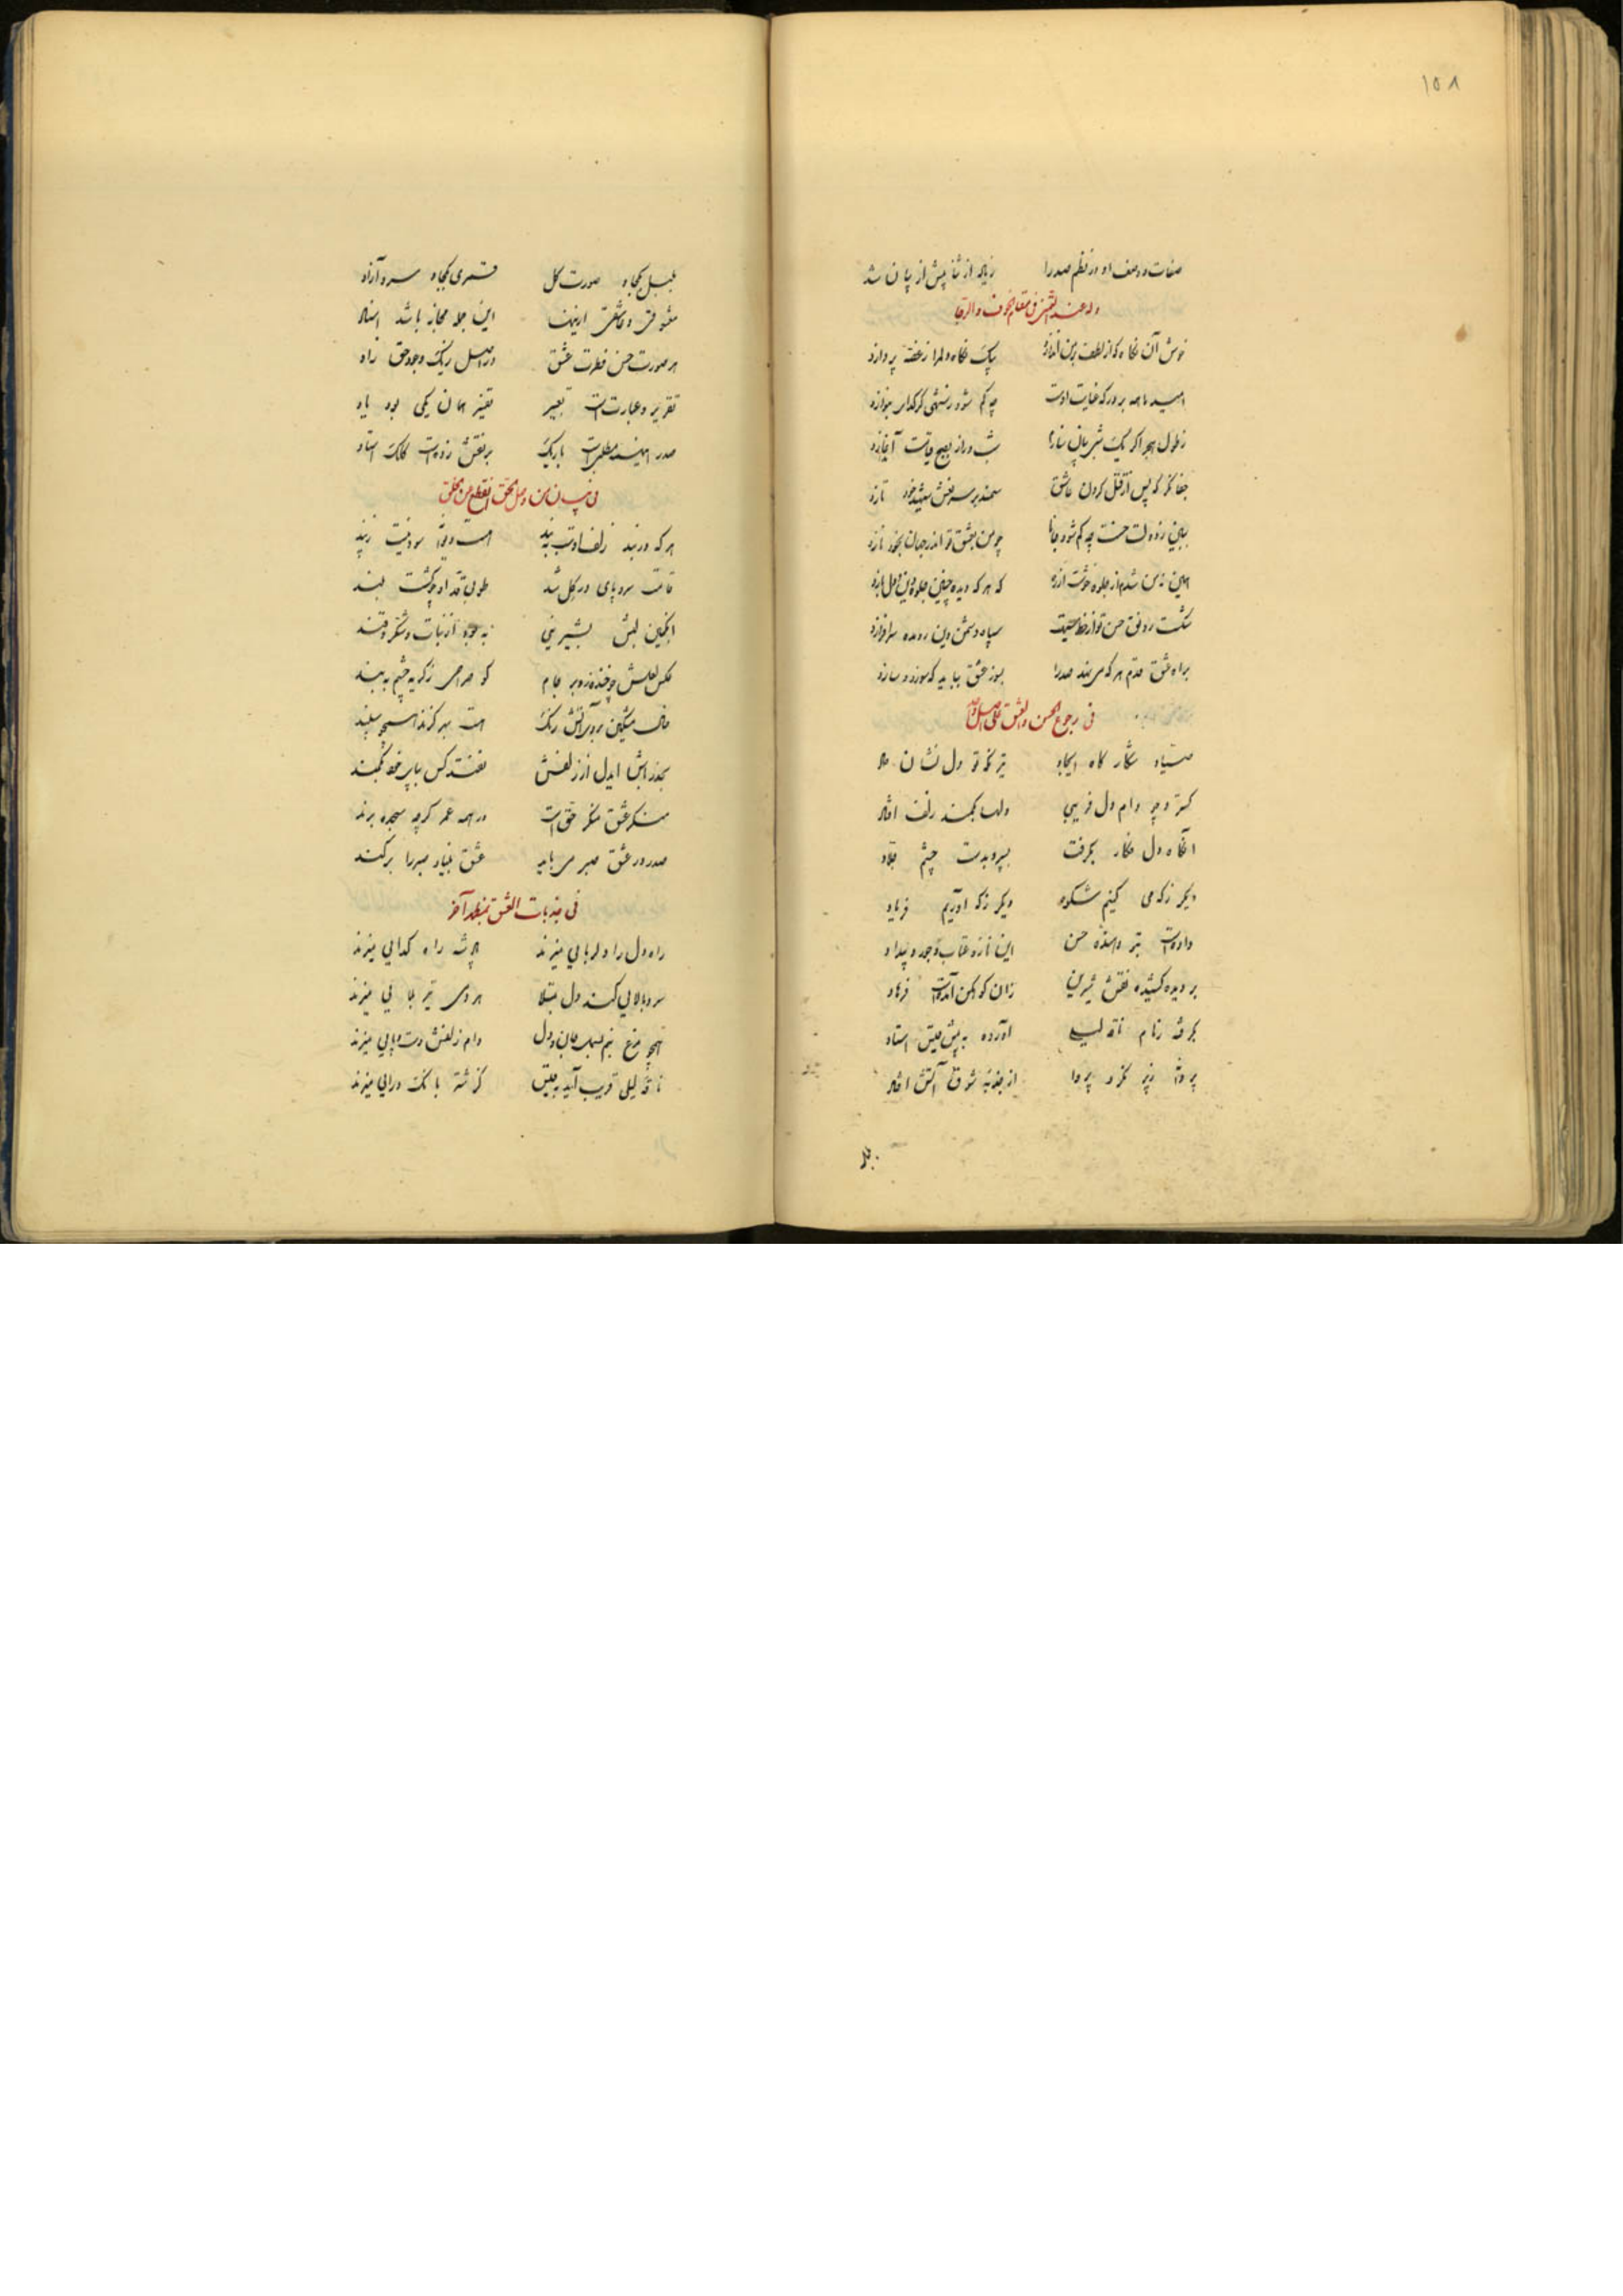 ۱۵۸
صفات و وصف او در نظم صدرا زیاده از ثنا بیش از بیان شد
وله عند فی مقام الخوف والرجا
خوش آن نگاه که از لطف بمن اندازد بیک نگاه دلم را ز غصه پردازد
امید ما همه بر درکه عنایت اوست چه کم شود ز شهی کر کدای بنوازد
ز طول هجر اکر یک شبی بیان سازم شب دراز بصبح قیامت آغازد
جفا نکر که پس از قتل کردن عاشق سمند بر سر نعش شهید خود تازد
حسنت چه کم شود جانا چو من بعشق تو اندر جهان بخود نازد
همین نه من شدم از جلوه خوشت از ره که هر که دیده چنین جلوه دین و دل بازد
شکست رونق حسن تو از خط سپاه دشمن دین سرافرازد
براه عشق قدم هر که می نهد صدرا بسوز عشق بباید که سوزد و سازد
فی رجوع الحسن والعشق علی اصل واحد
صیاد شکار کاه ایجاد تیر تو دل نشان داد
کسترد چه دام دل فریبی دلها بکمند زلف افتاد
آنکاه دل فکار بکرفت بسپرد بدست چشم
دیکر ز که می کنیم شکوه دیکر ز که آوریم فریاد
حسن این ناز و عتاب و جور و بیداد
بر دیده کشیده نقش شیرین زان کوهکن آمده است فرهاد
بکرفته زمام ناقه لیلی آورده به پیش قیس استاد
پروانه نکرد پروا از جذبه شوق آتش افتاد
بلبل
بلبل بکجا و صورت کل قمری بکجا و سرو آزاد
معشوقی و عاشقی این جمله مجاز باشد اسناد
هر صورت حسن فطرت عشق در اصل ز یک وجود حق زاد
تقریر و عبارت است تعبیر تغییر همان یکی بود یاد
صدر مطلبی است باریک بر نقش زده است کلک استاد
فی بیان من وصل بالحق انقطع من الخلق
هر که در بند زلف او است به بند پند
قامت سرو پای در کل شد طوبی قد او چو کشت بلند
انکبین لبش بشیرینی به بود از نبات و شکر و قند
عکس لعلش چو خنده زد بر جام کو صراحی ز کریه چشم به بند
خال مشکین بروی آتش رنک است بهر کزند همچو سپند
بحذر باش ایدل از زلفش نفتد کس بپای خود بکمند
منکر عشق منکر حق است در همه عمر کرچه سجده برند
صدر در عشق صبر می باید عشق بنیاد صبر را برکند
فی جذبات العشق بنغمة آخر
راه دل را دلربایی میزند پادشه راه کدایی میزند
سرو بالایی کند دل مبتلا هر دمی تیر بلایی میزند
همچو مرغ نیم بسمل جان و دل دام زلفش دست و پایی میزند
ناقه لیلی قریب آید به قیس کز شتر بانک درایی میزند